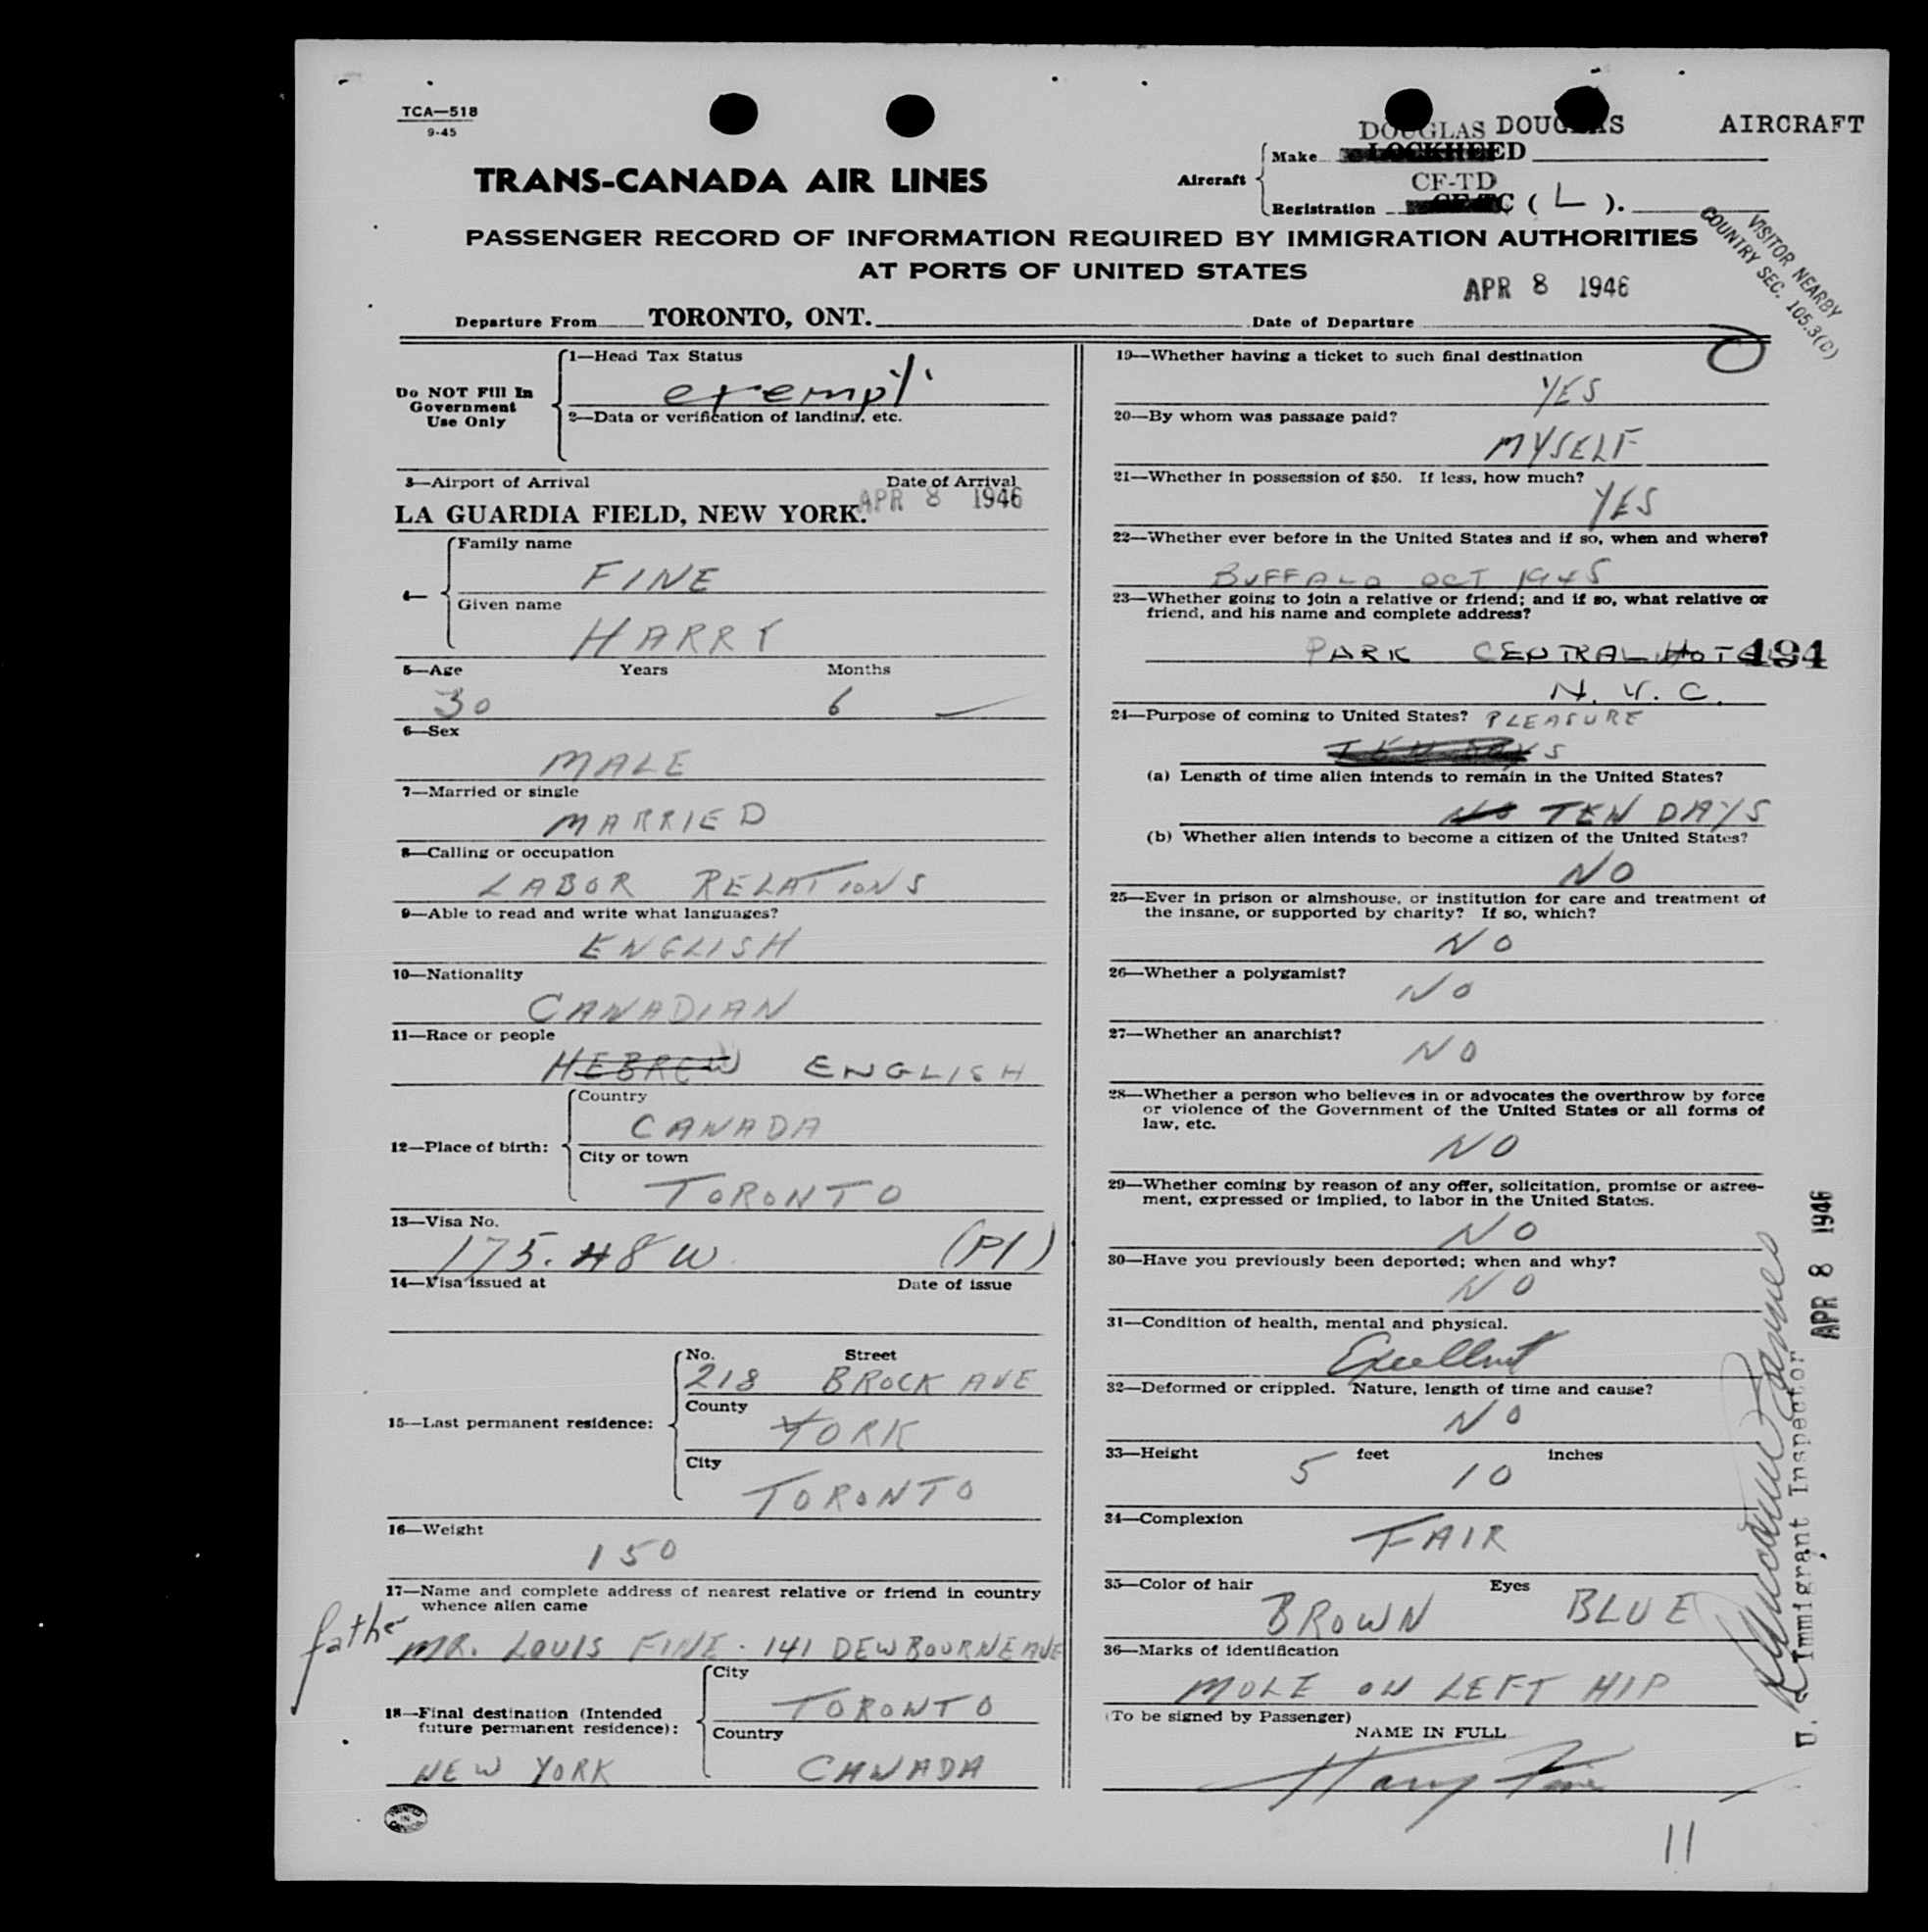 TCA—518
9-45
DOUGLAS DOUGLAS AIRCRAFT
TRANS-CANADA AIR LINES
Aircraft
Make LOCKHEED
CF-TD
Registration CF-TC ( L ).
PASSENGER RECORD OF INFORMATION REQUIRED BY IMMIGRATION AUTHORITIES
AT PORTS OF UNITED STATES
VISITOR NEARBY
COUNTRY SEC. 105.3(C)
APR 8 1946
Departure From TORONTO, ONT. Date of Departure
Do NOT Fill In
Government
Use Only
1—Head Tax Status
exempt
2—Data or verification of landing, etc.
3—Airport of Arrival Date of Arrival
APR 8 1946
LA GUARDIA FIELD, NEW YORK.
4—
Family name
FINE
Given name
HARRY
5—Age Years Months
30 6
6—Sex
MALE
7—Married or single
MARRIED
8—Calling or occupation
LABOR RELATIONS
9—Able to read and write what languages?
ENGLISH
10—Nationality
CANADIAN
11—Race or people
HEBREW ENGLISH
12—Place of birth:
Country
CANADA
City or town
TORONTO
13—Visa No.
175.48 W (P1)
14—Visa issued at Date of issue
15—Last permanent residence:
No. Street
218 BROCK AVE
County
YORK
City
TORONTO
16—Weight
150
17—Name and complete address of nearest relative or friend in country
whence alien came
father
MR. LOUIS FINE. 141 DEWBOURNE AVE
18—Final destination (Intended
future permanent residence):
City
TORONTO
Country
NEW YORK CANADA
PRINTED
IN
CANADA
19—Whether having a ticket to such final destination
YES
20—By whom was passage paid?
MYSELF
21—Whether in possession of $50. If less, how much?
YES
22—Whether ever before in the United States and if so, when and where?
BUFFALO OCT 1945
23—Whether going to join a relative or friend; and if so, what relative or
friend, and his name and complete address?
PARK CENTRAL HOTEL 494
N.Y.C.
24—Purpose of coming to United States? PLEASURE
TEN DAYS
(a) Length of time alien intends to remain in the United States?
NO TEN DAYS
(b) Whether alien intends to become a citizen of the United States?
NO
25—Ever in prison or almshouse, or institution for care and treatment of
the insane, or supported by charity? If so, which?
NO
26—Whether a polygamist?
NO
27—Whether an anarchist?
NO
28—Whether a person who believes in or advocates the overthrow by force
or violence of the Government of the United States or all forms of
law, etc.
NO
29—Whether coming by reason of any offer, solicitation, promise or agree-
ment, expressed or implied, to labor in the United States.
NO
30—Have you previously been deported; when and why?
NO
31—Condition of health, mental and physical.
Excellent
32—Deformed or crippled. Nature, length of time and cause?
NO
33—Height feet inches
5 10
34—Complexion
FAIR
35—Color of hair Eyes
BROWN BLUE
36—Marks of identification
MOLE ON LEFT HIP
(To be signed by Passenger)
NAME IN FULL
Harry Fine
11
U. S. Immigrant Inspector
APR 8 1946